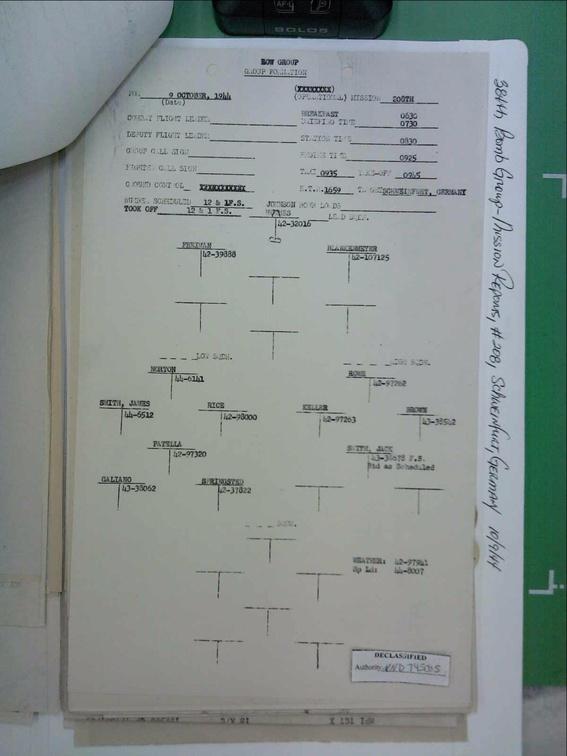 SOLOS
BOW GROUP
GROUP FORMATION
9 OCTOBER, 1944
(Date)
(OPERATIONAL) MISSION 208TH
BREAKFAST 0630
BRIEFING TIME 0730
DEPUTY FLIGHT LEADER
STATION TIME 0830
GROUP CALL SIGN
ENGINE TIME 0925
CALL SIGN
TAXI 0935 TAKE-OFF 0945
GROUND CONTROL
E.T.R. 1659 TARGET SCHWEINFURT, GERMANY
SCHEDULED 12 & 1F.S.
TOOK OFF 12 & 1 F.S.
JOHNSON
42-32016
LEAD SQDN.
42-39888
BLANKENMEYER
42-107125
LOW SQDN.
HIGH SQDN.
NORTON
44-6141
ROWE
42-97262
SMITH, JAMES
44-6512
RICE
42-98000
KELLER
42-97263
BROWN
43-38542
PATELLA
42-97320
SMITH, JACK
43-38678 F.S.
Std as Scheduled
GALIANO
43-38062
SPRINGSTED
42-37822
SQDN.
WEATHER: 42-97941
Sp Ld: 44-8007
DECLASSIFIED
Authority NND 745005
384th Bomb Group - Mission Reports, #208, Schweinfurt, Germany 10/9/44